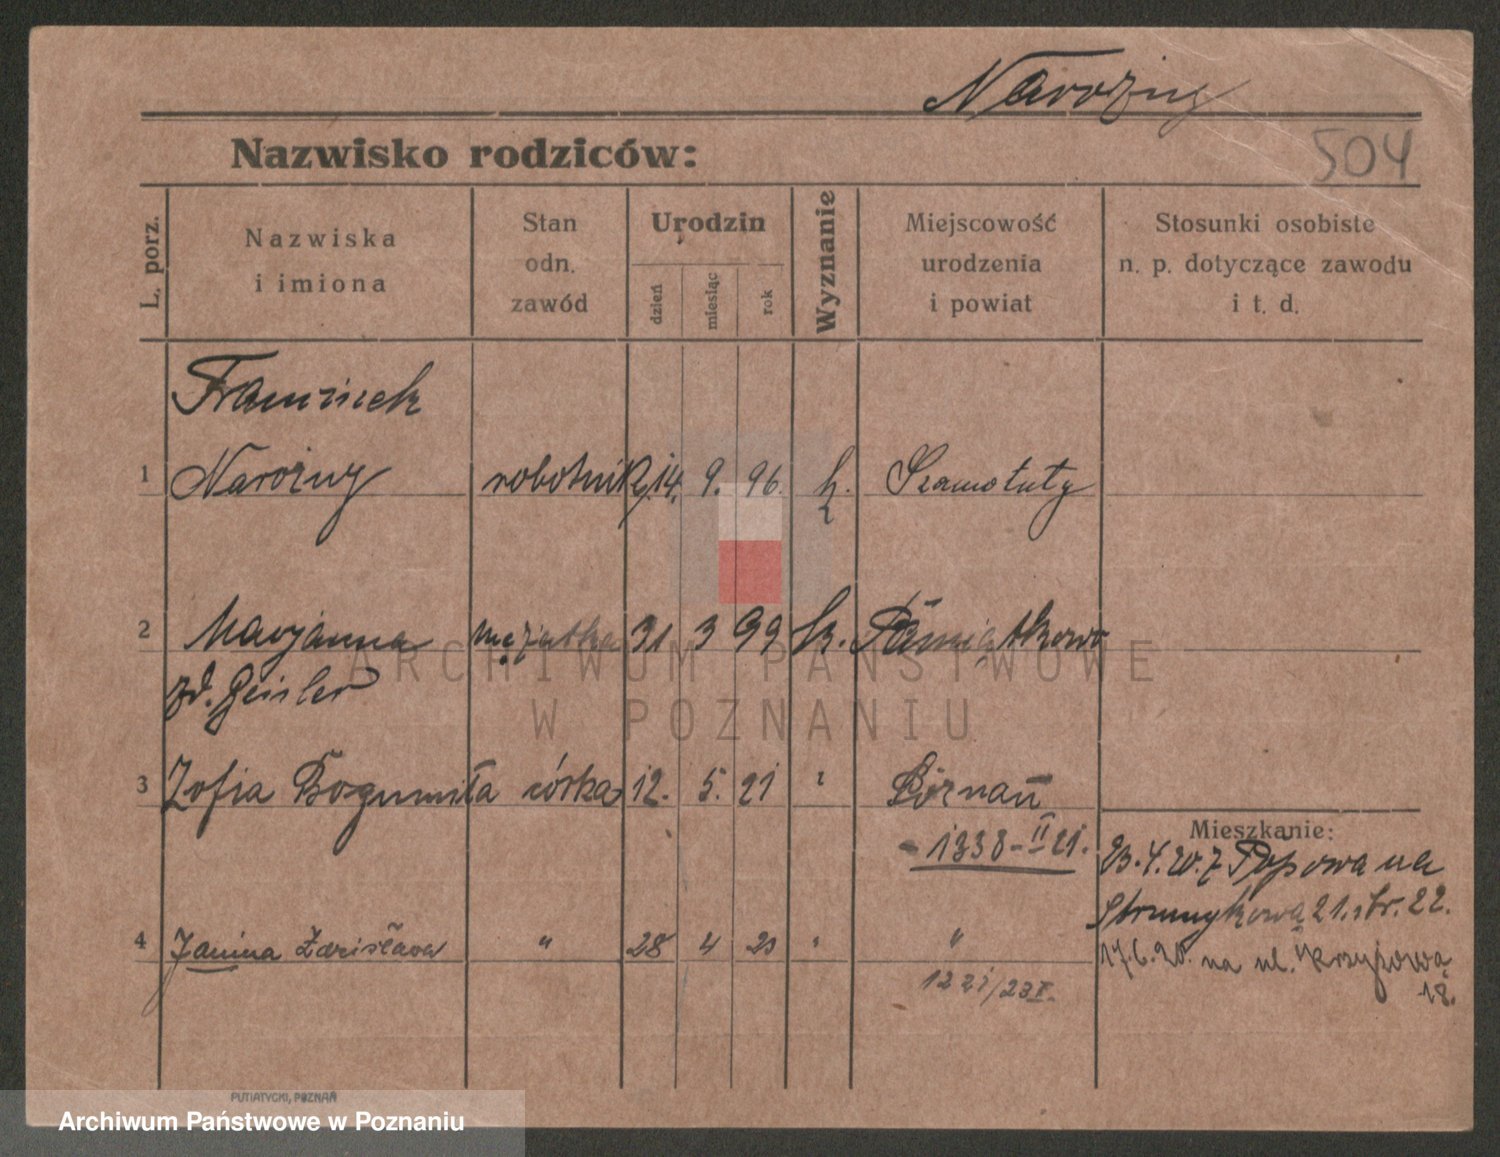 Narożny
Nazwisko rodziców:
504
L. porz.
Nazwiska
i imiona
Stan
odn.
zawód
Urodzin
dzień
miesiąc
rok
Wyznanie
Miejscowość
urodzenia
i powiat
Stosunki osobiste
n. p. dotyczące zawodu
i t. d.
Franciszek
1 Narożny robotnik 14. 9. 96. k. Szamotuły
2 Maryanna mężatka 31 3 99 k. Pamiątkowo
zd. Geisler
3 Zofia Bogumiła córka 12. 5. 21 " Poznań
- 1338 - II 21.
Mieszkanie:
4. 20. z Popowa na
Strumykową 21. str. 22.
4 Janina Zdzisława " 28 4 23 " "
17.6.20. na ul. Krzyżową
18.
1221/23 V.
ARCHIWUM PAŃSTWOWE
W POZNANIU
PUTIATYCKI, POZNAŃ
Archiwum Państwowe w Poznaniu